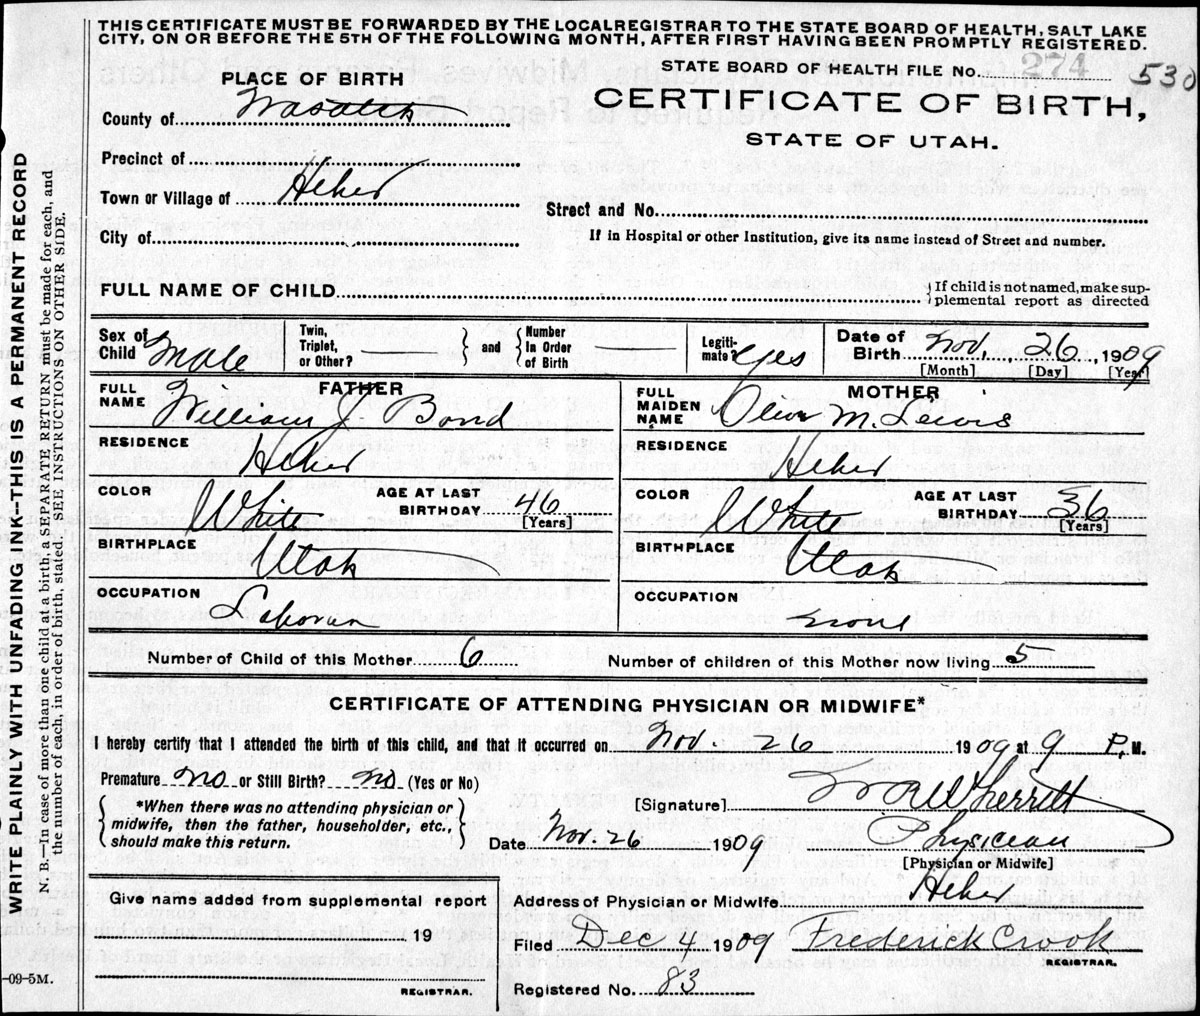 THIS CERTIFICATE MUST BE FORWARDED BY THE LOCAL REGISTRAR TO THE STATE BOARD OF HEALTH, SALT LAKE
CITY, ON OR BEFORE THE 5TH OF THE FOLLOWING MONTH, AFTER FIRST HAVING BEEN PROMPTLY REGISTERED.
STATE BOARD OF HEALTH FILE No. 274 530
PLACE OF BIRTH
CERTIFICATE OF BIRTH,
STATE OF UTAH.
County of Wasatch
Precinct of
Town or Village of Heber
Street and No.
City of
If in Hospital or other Institution, give its name instead of Street and number.
FULL NAME OF CHILD
{If child is not named, make sup-
plemental report as directed
Sex of Child Male
Twin, Triplet, or Other? } and { Number In Order of Birth
Legiti-mate? Yes
Date of Birth Nov. 26, 1909
[Month] [Day] [Year]
FATHER
FULL NAME William J. Bond
RESIDENCE Heber
COLOR White
AGE AT LAST BIRTHDAY 46
[Years]
BIRTHPLACE Utah
OCCUPATION Laborer
MOTHER
FULL MAIDEN NAME Olive M. Lewis
RESIDENCE Heber
COLOR White
AGE AT LAST BIRTHDAY 36
[Years]
BIRTHPLACE Utah
OCCUPATION None
Number of Child of this Mother 6
Number of children of this Mother now living 5
CERTIFICATE OF ATTENDING PHYSICIAN OR MIDWIFE*
I hereby certify that I attended the birth of this child, and that it occurred on Nov. 26 1909 at 9 P.M.
Premature no or Still Birth? no (Yes or No)
{ *When there was no attending physician or
midwife, then the father, householder, etc.,
should make this return. }
[Signature] Wherritt
Date Nov. 26 1909
Physician
[Physician or Midwife]
Address of Physician or Midwife Heber
Give name added from supplemental report
19
REGISTRAR.
Filed Dec 4 1909 Frederick Crook
REGISTRAR.
Registered No. 83
-09-5M.
WRITE PLAINLY WITH UNFADING INK--THIS IS A PERMANENT RECORD
N. B.—In case of more than one child at a birth, a SEPARATE RETURN must be made for each, and
the number of each, in order of birth, stated. SEE INSTRUCTIONS ON OTHER SIDE.